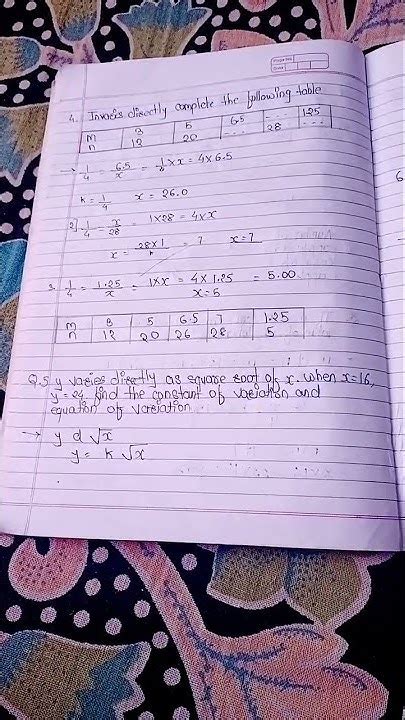 4. Invaeis disectly complete the following table
m 3 5 6.5 --- 1.25
n 12 20 --- 28 ---
→ 1/4 = 6.5/x = 1/4 × x = 4×6.5
k = 1/4 x = 26.0
2] 1/4 = x/28 = 1×28 = 4×x
x = 28×1/4 = 7 x=7
3 1/4 = 1.25/x = 1×x = 4×1.25 = 5.00
x=5
m 3 5 6.5 7 1.25
n 12 20 26 28 5
Q.5 y varies directly as square root of x. when x=16,
y=24. find the constant of variation and
equation of variation
→ y d √x
y = k √x